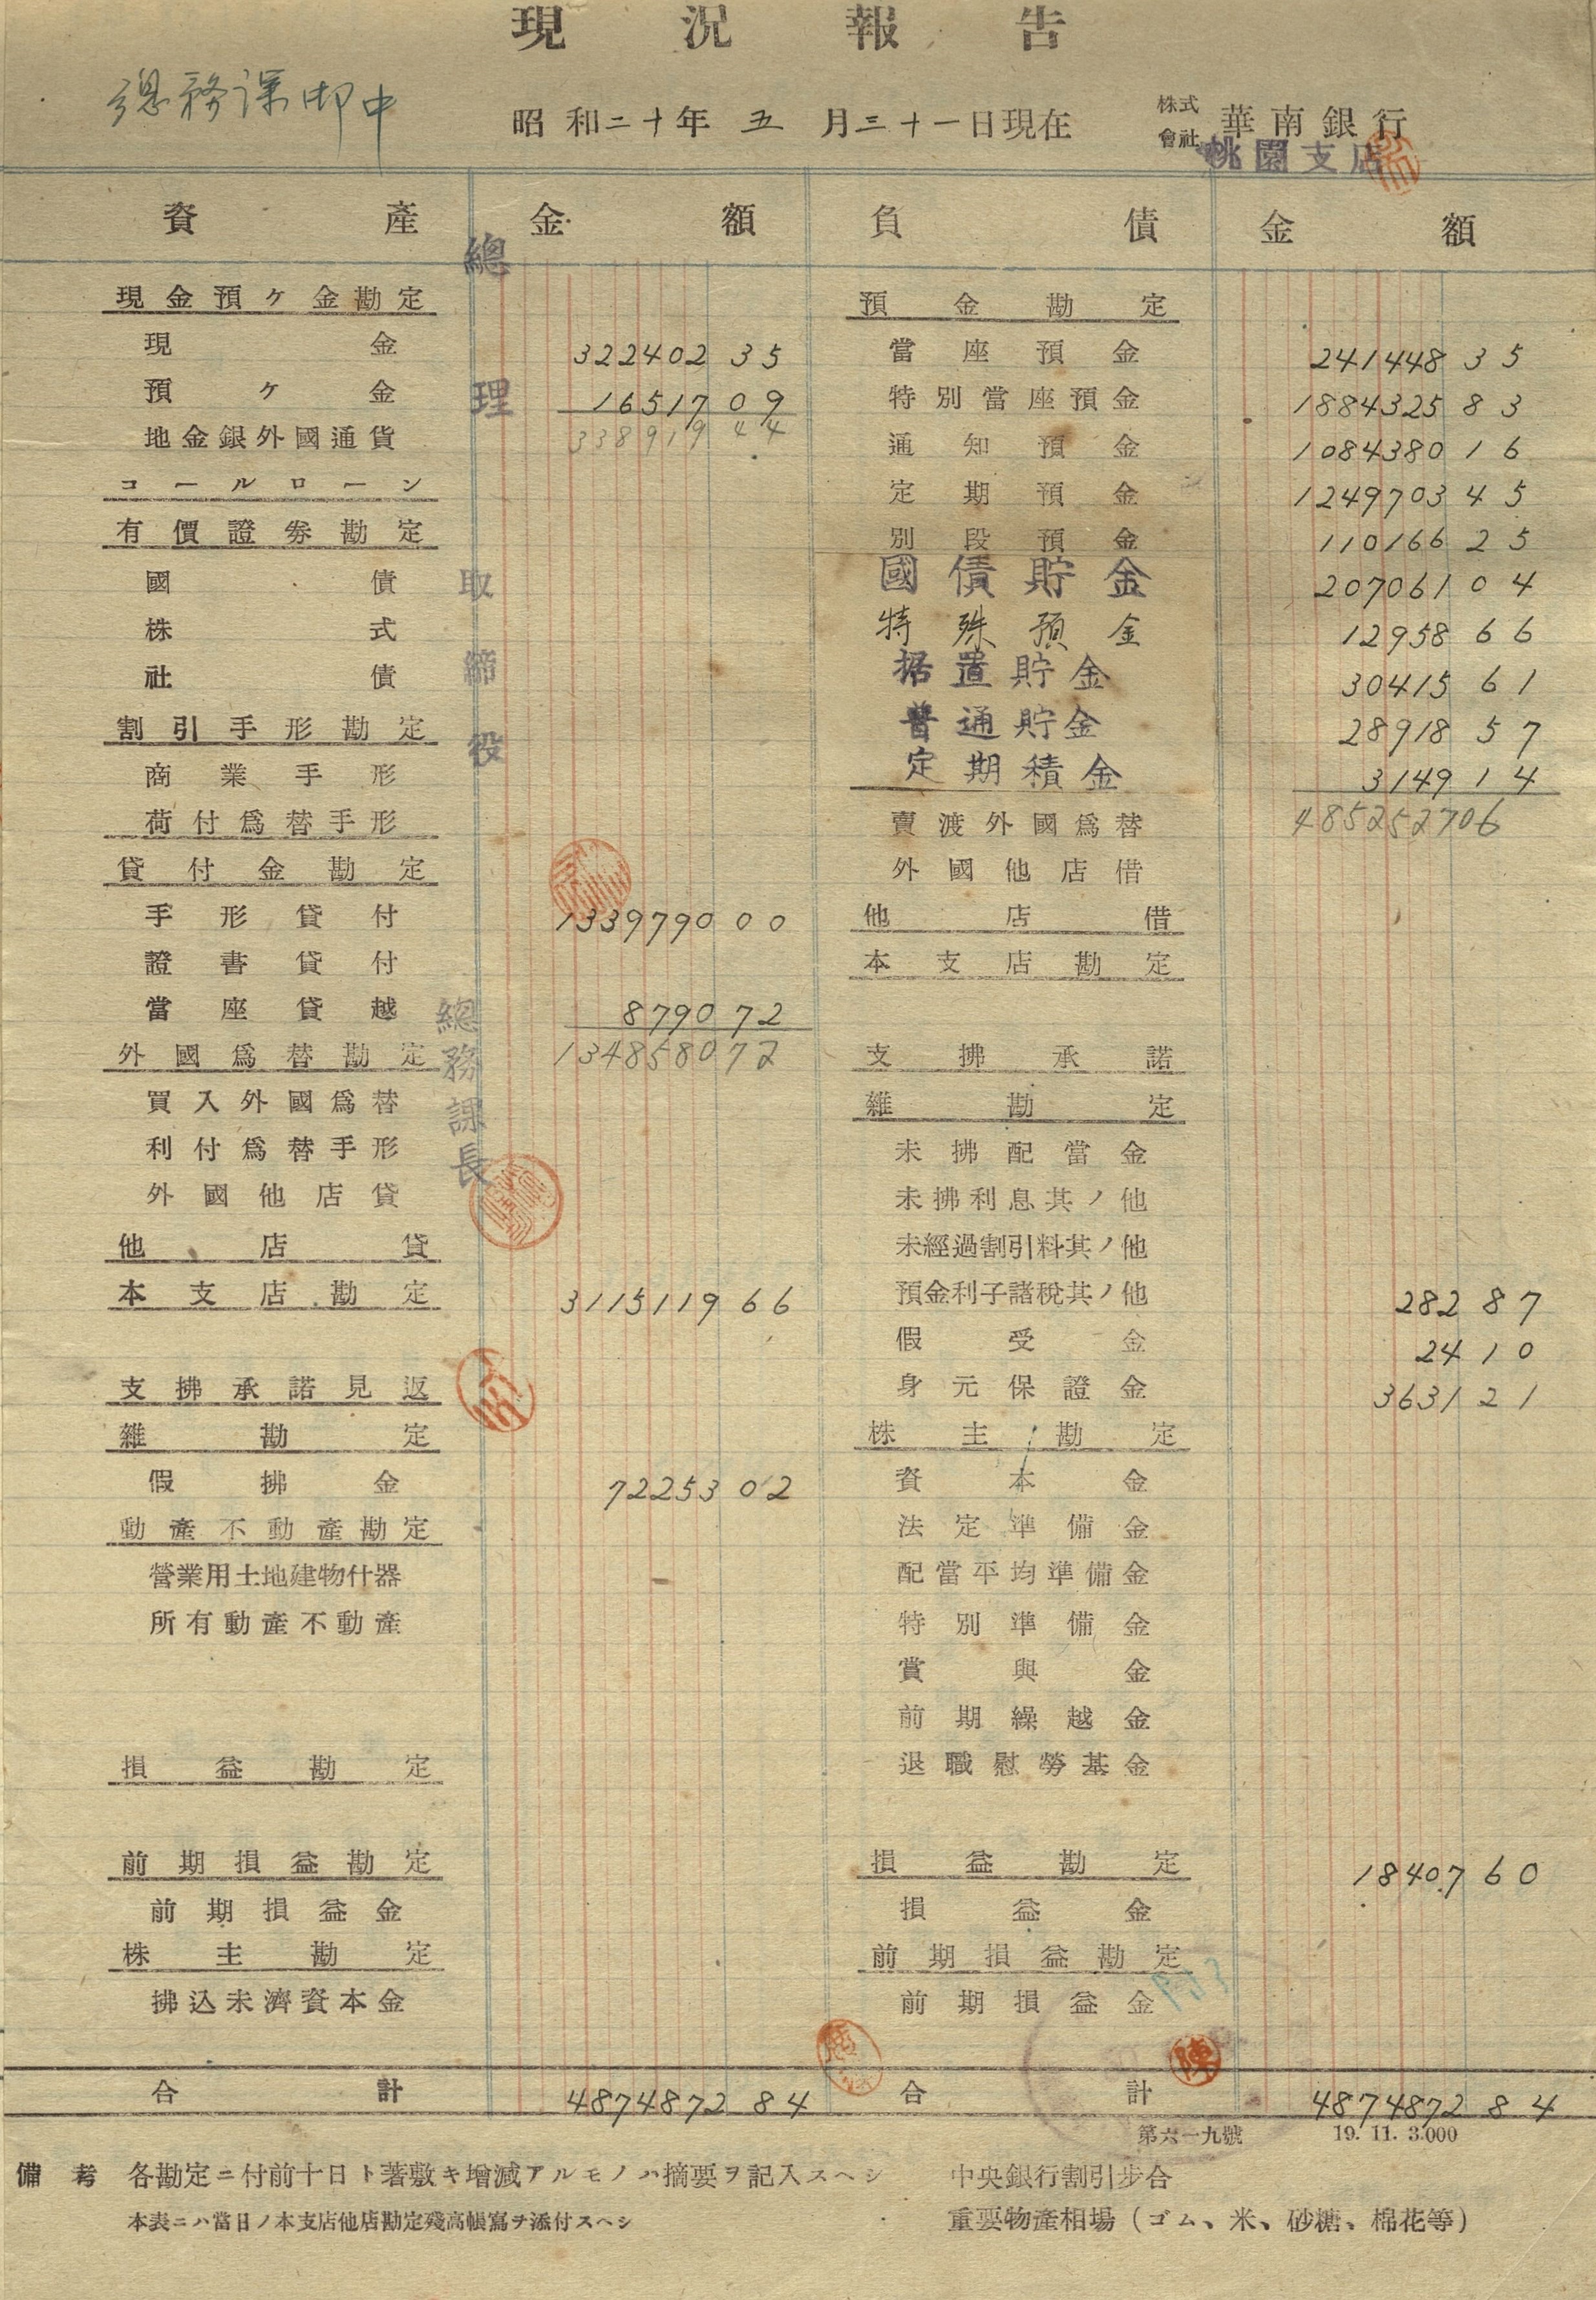 現況報告
総務課御中
昭和二十年五月三十一日現在
株式會社 華南銀行
桃園支店
資產 金額 負債 金額
總理
取締役
總務課長
現金預ヶ金勘定
現金 322402 35
預ヶ金 16517 09
338919 44
地金銀外國通貨
コールローン
有價證券勘定
國債
株式
社債
割引手形勘定
商業手形
荷付爲替手形
貸付金勘定
手形貸付 1339790 00
證書貸付
當座貸越 8790 72
1348580 72
外國爲替勘定
買入外國爲替
利付爲替手形
外國他店貸
他店貸
本支店勘定 3115119 66
支拂承諾見返
雜勘定
假拂金 72253 02
動產不動產勘定
營業用土地建物什器
所有動產不動產
損益勘定
前期損益勘定
前期損益金
株主勘定
拂込未濟資本金
合計 4874872 84
預金勘定
當座預金 241448 35
特別當座預金 1884325 83
通知預金 1084380 16
定期預金 1249703 45
別段預金 110166 25
國債貯金 207061 04
特殊預金 12958 66
据置貯金 30415 61
普通貯金 28918 57
定期積金 3149 14
4852527 06
賣渡外國爲替
外國他店借
他店借
本支店勘定
支拂承諾
雜勘定
未拂配當金
未拂利息其ノ他
未經過割引料其ノ他
預金利子諸稅其ノ他 282 87
假受金 24 10
身元保證金 3631 21
株主勘定
資本金
法定準備金
配當平均準備金
特別準備金
賞與金
前期繰越金
退職慰勞基金
損益勘定 18407 60
損益金
前期損益勘定
前期損益金
陳
合計 4874872 84
第六一九號 19. 11. 3.000
備考 各勘定ニ付前十日ト著敷キ增減アルモノハ摘要ヲ記入スヘシ
本表ニハ當日ノ本支店他店勘定殘高帳寫ヲ添付スヘシ
中央銀行割引步合
重要物產相場(ゴム、米、砂糖、棉花等)